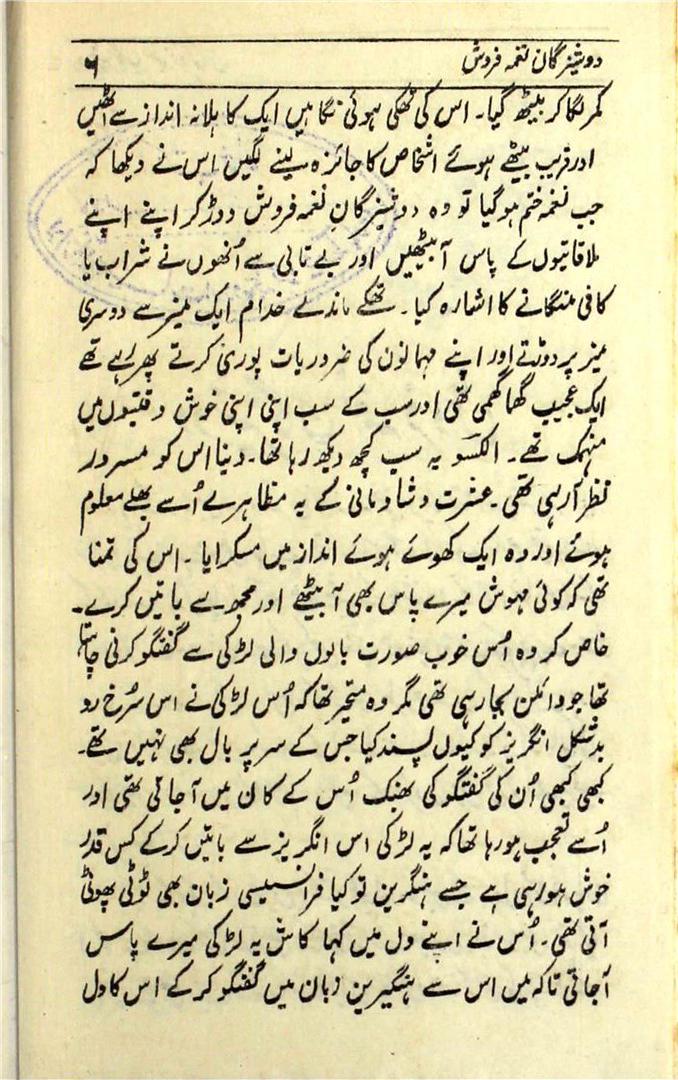 دوشیزگان نغمہ فروش ۶
کمر لگا کر بیٹھ گیا۔ اس کی تھکی ہوئی نگاہیں ایک کاہلانہ انداز سے اٹھیں
اور قریب بیٹھے ہوئے اشخاص کا جائزہ لینے لگیں اس نے دیکھا کہ
جب نغمہ ختم ہو گیا تو وہ دوشیزگانِ نغمہ فروش دوڑ کر اپنے اپنے
ملاقاتیوں کے پاس آ بیٹھیں اور بے تابی سے اُنھوں نے شراب یا
کافی منگانے کا اشارہ کیا۔ تھکے ماندے خدام ایک میز سے دوسری
میز پر دوڑتے اور اپنے مہمانوں کی ضروریات پوری کرتے پھر رہے تھے
ایک عجیب گہما گہمی تھی اور سب کے سب اپنی اپنی خوش وقتیوں میں
منہمک تھے۔ الکسو یہ سب کچھ دیکھ رہا تھا۔ دنیا اس کو مسرور
نظر آ رہی تھی۔ عشرت و شادمانی کے یہ مظاہرے اُسے بھلے معلوم
ہوئے اور وہ ایک کھوئے ہوئے انداز میں مسکرایا۔ اس کی تمنا
تھی کہ کوئی مہوش میرے پاس بھی آ بیٹھے اور مجھ سے باتیں کرے۔
خاص کر وہ اُس خوب صورت بالوں والی لڑکی سے گفتگو کرنی چاہتا
تھا جو وائلن بجا رہی تھی مگر وہ متحیر تھا کہ اُس لڑکی نے اس سُرخ رو
بدشکل انگریز کو کیوں پسند کیا جس کے سر پر بال بھی نہیں تھے۔
کبھی کبھی اُن کی گفتگو کی بھنک اُس کے کان میں آ جاتی تھی اور
اُسے تعجب ہو رہا تھا کہ یہ لڑکی اس انگریز سے باتیں کرکے کس قدر
خوش ہو رہی ہے جسے ہنگرین تو کیا فرانسیسی زبان بھی ٹوٹی پھوٹی
آتی تھی۔ اُس نے اپنے دل میں کہا کاش یہ لڑکی میرے پاس
آ جاتی تاکہ میں اس سے ہنگیرین زبان میں گفتگو کرکے اس کا دل